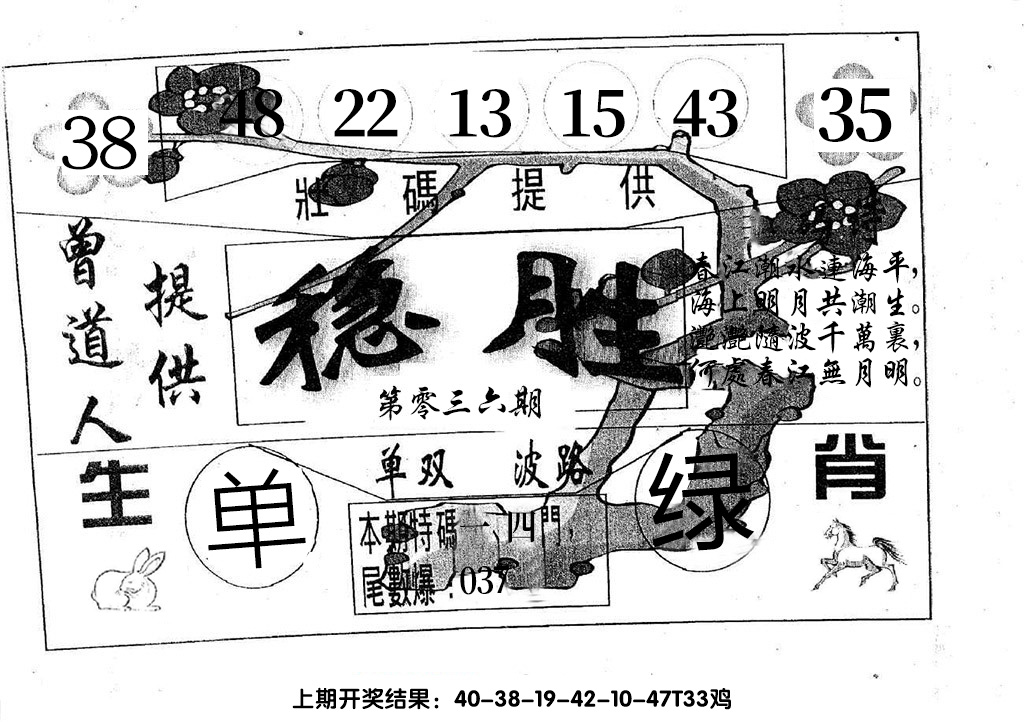 38 48 22 13 15 43 35
壯碼提供
曾道人
提供
稳胜
第零三六期
春江潮水連海平，
海上明月共潮生。
灔灔隨波千萬裏，
何處春江無月明。
单双 波路
生肖
单
绿
本期特碼一、四門，
尾數爆：037
上期开奖结果：40-38-19-42-10-47T33鸡